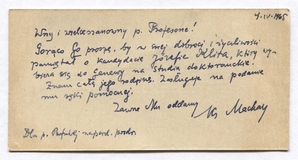 4.IV.1965
Wny i wielceszanowny p. Profesorze!
Gorąco Go proszę, by w swej dobroci i życzliwości
pamiętał o kandydacie Józefie Klita, który wy-
biera się do Genewy na studia doktoranckie.
Znam całą jego rodzinę. Zasługuje na podanie
mu ręki pomocnej.
Zawsze Mu oddany
Ks Machay
Dla p.